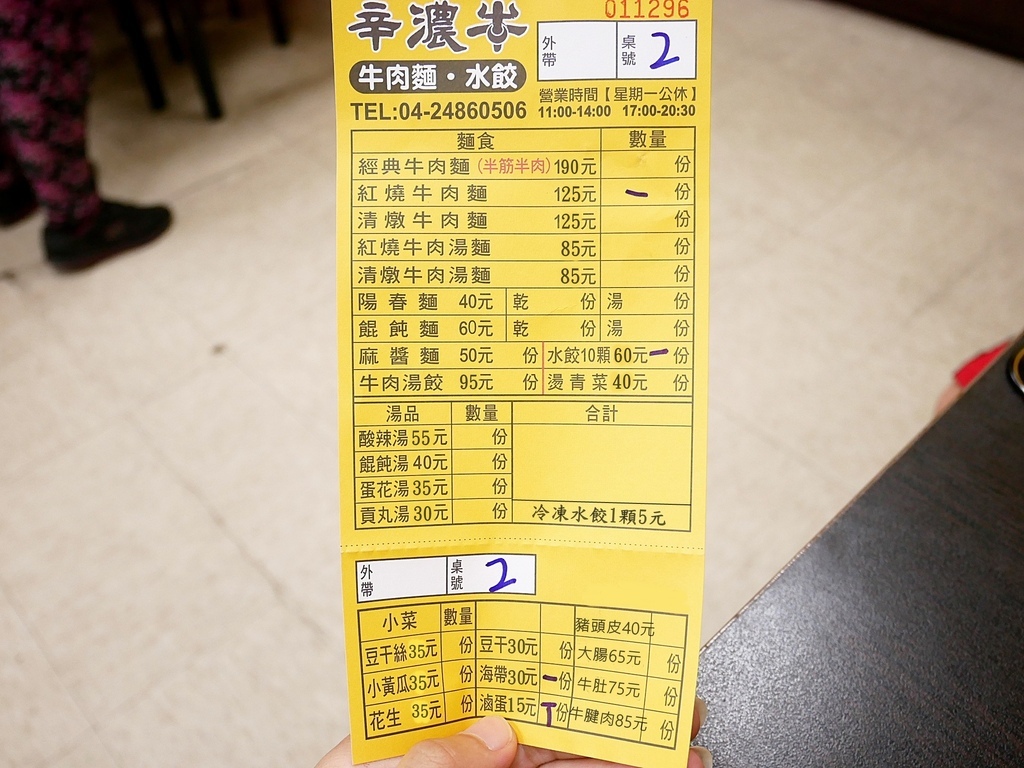 011296
辛濃牛
外帶 桌號 2
牛肉麵・水餃
TEL:04-24860506
營業時間【星期一公休】
11:00-14:00 17:00-20:30
麵食 數量
經典牛肉麵(半筋半肉)190元 份
紅燒牛肉麵 125元 一 份
清燉牛肉麵 125元 份
紅燒牛肉湯麵 85元 份
清燉牛肉湯麵 85元 份
陽春麵 40元 乾 份 湯 份
餛飩麵 60元 乾 份 湯 份
麻醬麵 50元 份 水餃10顆60元 一 份
牛肉湯餃 95元 份 燙青菜40元 份
湯品 數量 合計
酸辣湯55元 份
餛飩湯40元 份
蛋花湯35元 份
貢丸湯30元 份 冷凍水餃1顆5元
外帶 桌號 2
小菜 數量 豬頭皮40元
豆干絲35元 份 豆干30元 份 大腸65元 份
小黃瓜35元 份 海帶30元 一 份 牛肚75元 份
花生 35元 份 滷蛋15元 T 份 牛腱肉85元 份